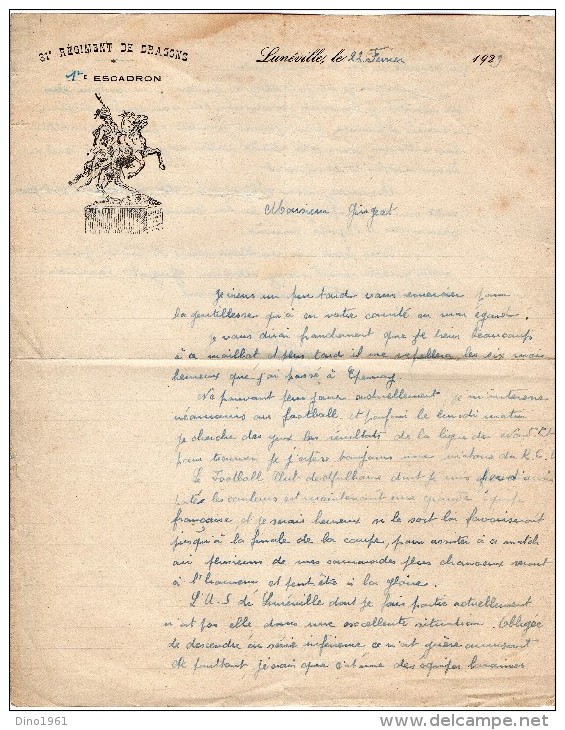 31e RÉGIMENT DE DRAGONS
1re ESCADRON
Lunéville, le 22 Fevrier 1929
Monsieur
Je viens un peu tard vous remercier pour
la gentillesse qu'à eu votre comité en mon égard.
Je vous dirai franchement que je tiens beaucoup
à ce maillot et plus tard il me rappellera les six mois
heureux que j'ai passé à Epernay.
Ne pouvant plus jouer actuellement je m'interesse
néanmoins au football et parfois le lundi matin
je cherche des yeux les résultats de la ligue du
pour trouver je l'espère toujours une victoire du R.C.E
Le Football Club de Mulhouse dont je
les couleurs est maintenant une grande équipe
française et je serais heureux si le sort la favoriserait
jusqu'à la finale de la coupe, pour assister à ce match
où plusieurs de mes camarades plus chanceux seront
à l'honneur et peut être à la gloire.
L'U.S de Lunéville dont je fais partie actuellement
n'est pas elle dans une excellente situation. Obligée
de descendre en série inférieure ce n'est guère amusant
et pourtant, je crois que c'est une des équipes lorraines
Dino1961
www.delcampe.net